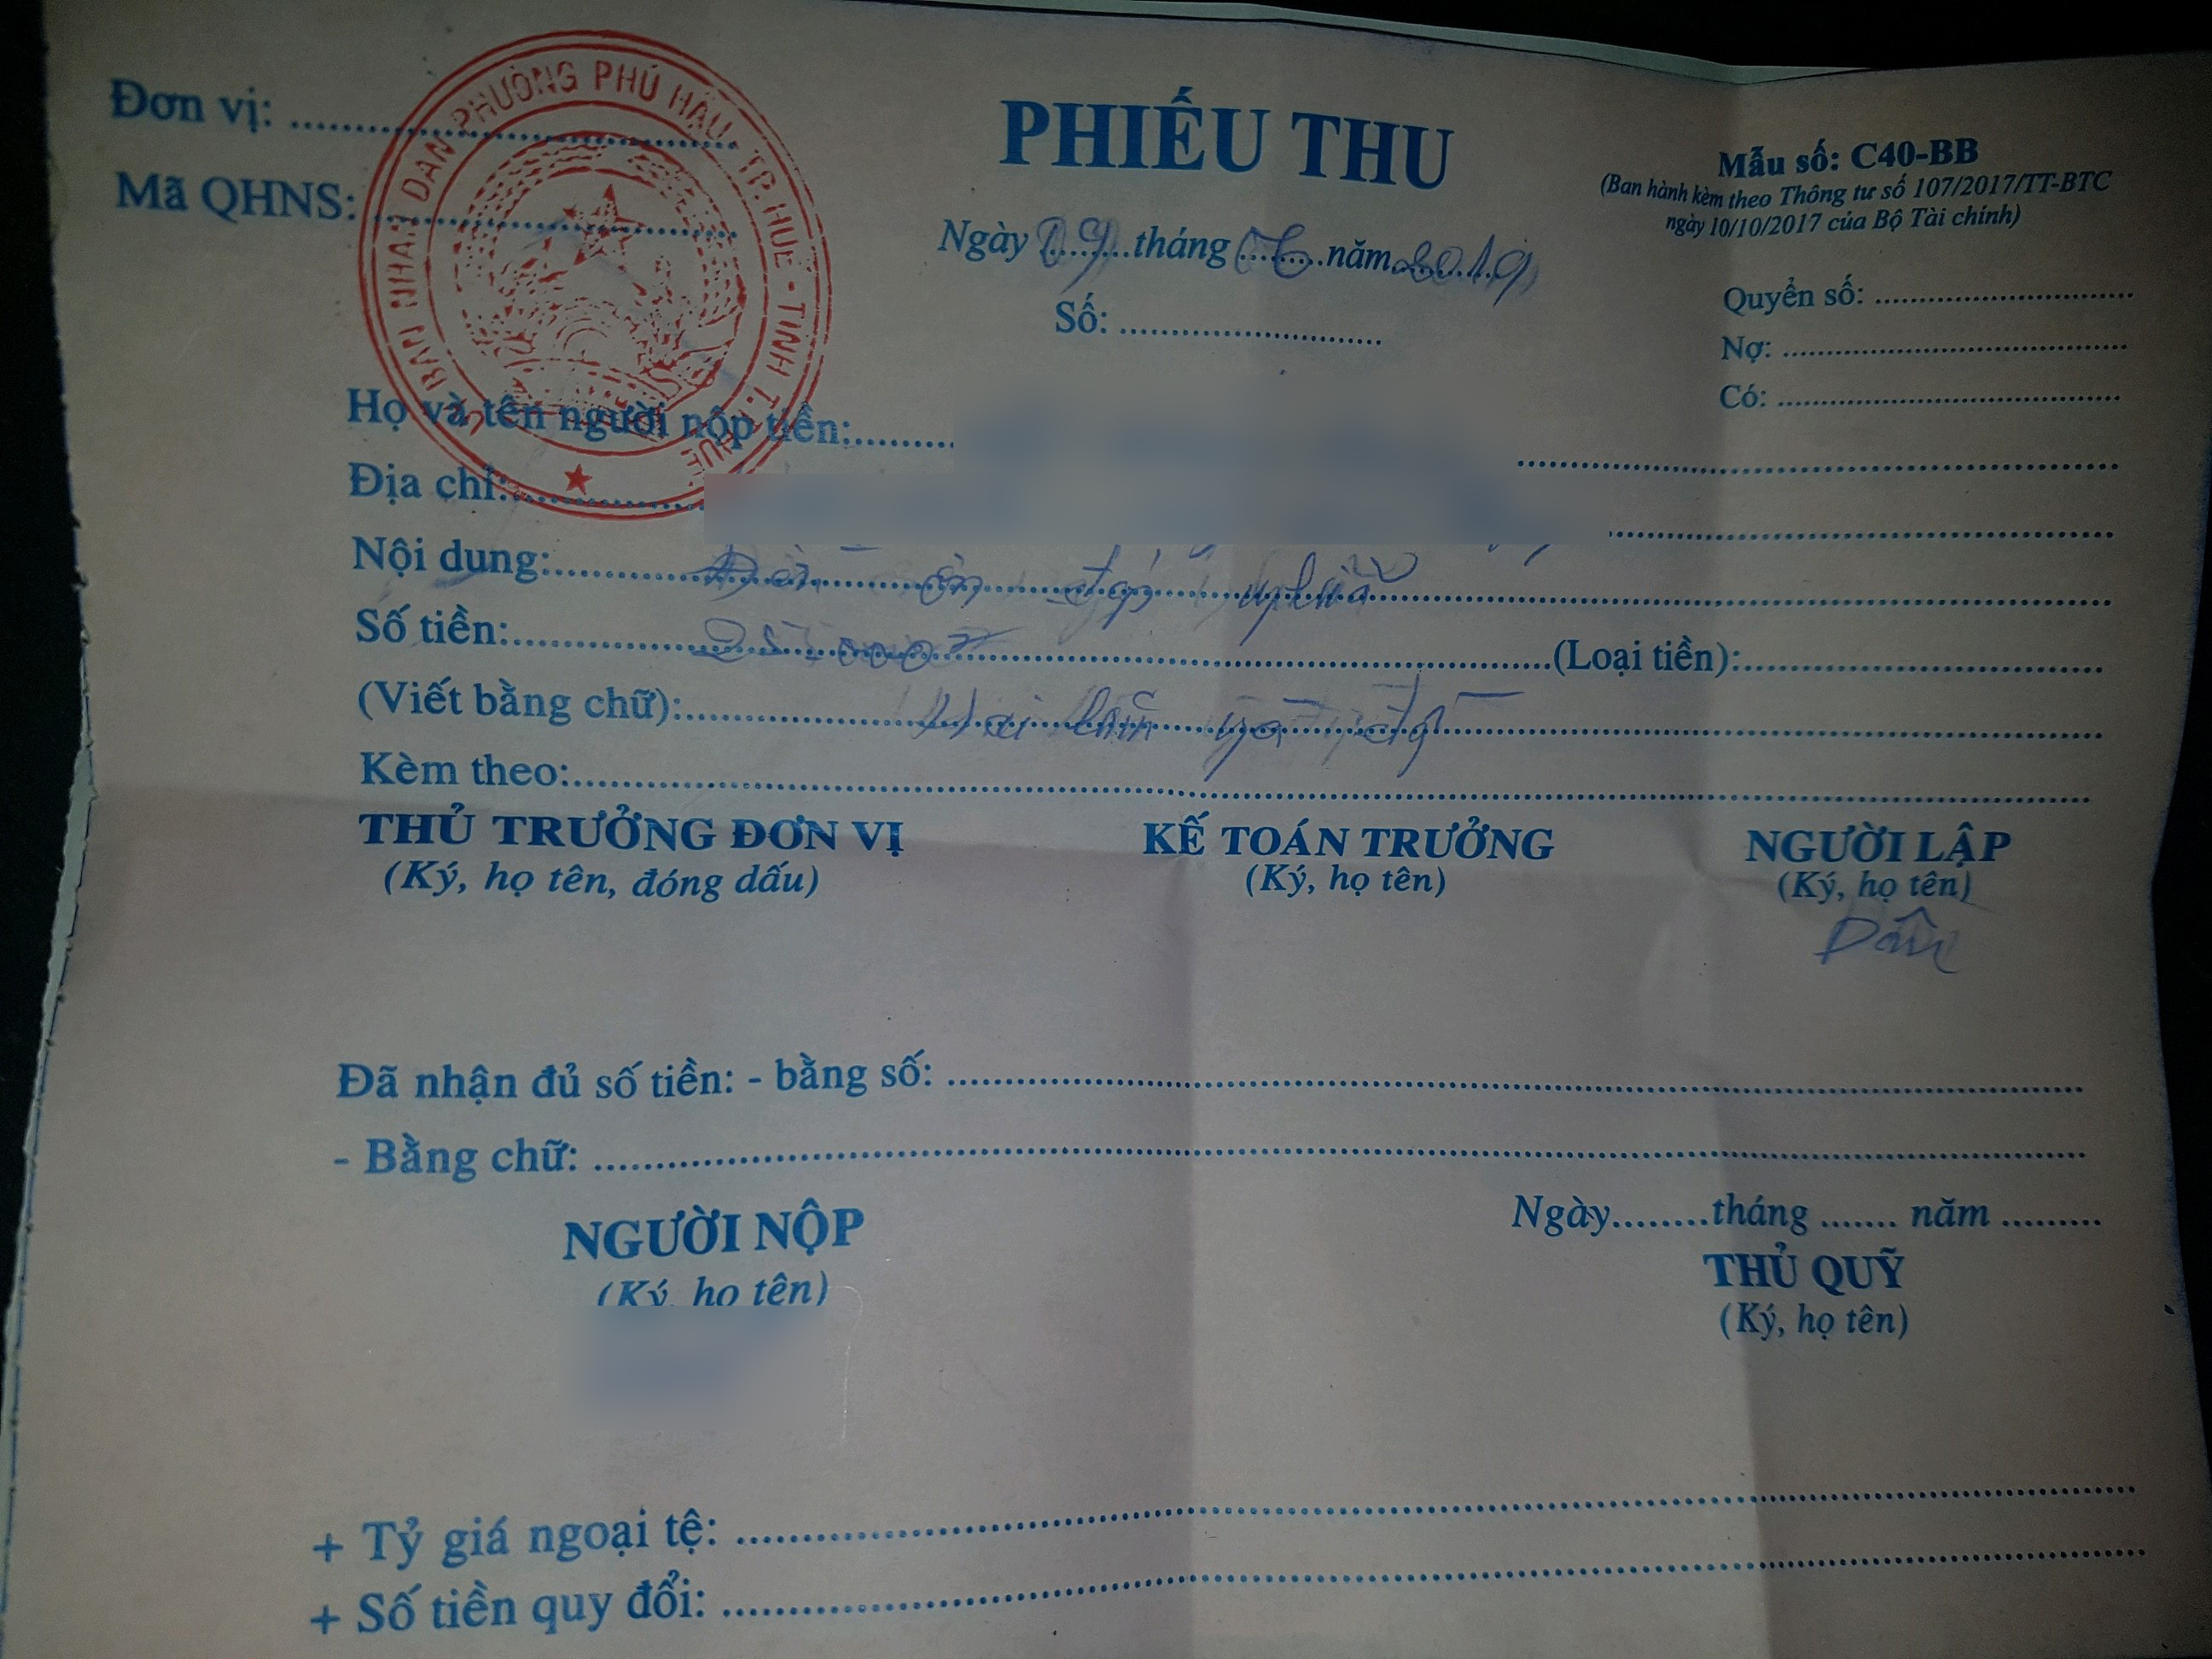 Đơn vị: ....................
Mã QHNS: ....................
ỦY BAN NHÂN DÂN PHƯỜNG PHÚ HẬU - TP. HUẾ - TỈNH T.T HUẾ
PHIẾU THU
Ngày 19 tháng 6 năm 2019
Số: ....................
Mẫu số: C40-BB
(Ban hành kèm theo Thông tư số 107/2017/TT-BTC
ngày 10/10/2017 của Bộ Tài chính)
Quyển số: ....................
Nợ: ....................
Có: ....................
Họ và tên người nộp tiền: ....................
Địa chỉ: ....................
Nội dung: Đền ơn đáp nghĩa
Số tiền: 25.000đ (Loại tiền): ....................
(Viết bằng chữ): Hai lăm ngàn đồng
Kèm theo: ....................
THỦ TRƯỞNG ĐƠN VỊ KẾ TOÁN TRƯỞNG NGƯỜI LẬP
(Ký, họ tên, đóng dấu) (Ký, họ tên) (Ký, họ tên)
Đã nhận đủ số tiền: - bằng số: ....................
- Bằng chữ: ....................
Ngày........tháng ....... năm .........
NGƯỜI NỘP THỦ QUỸ
(Ký, họ tên) (Ký, họ tên)
+ Tỷ giá ngoại tệ: ....................
+ Số tiền quy đổi: ....................